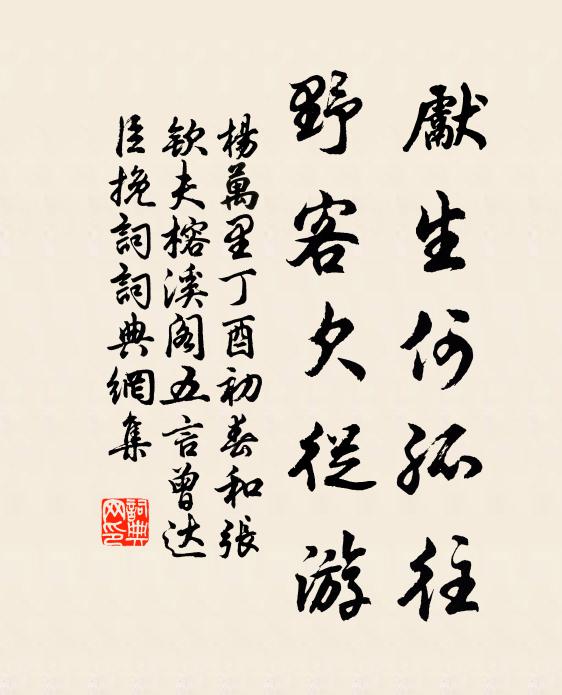 獻生何孤往
野客欠從游
楊萬里丁酉初春和張
欽夫榕溪阁五言曾达
臣挽詞詞典網集
詞典网印